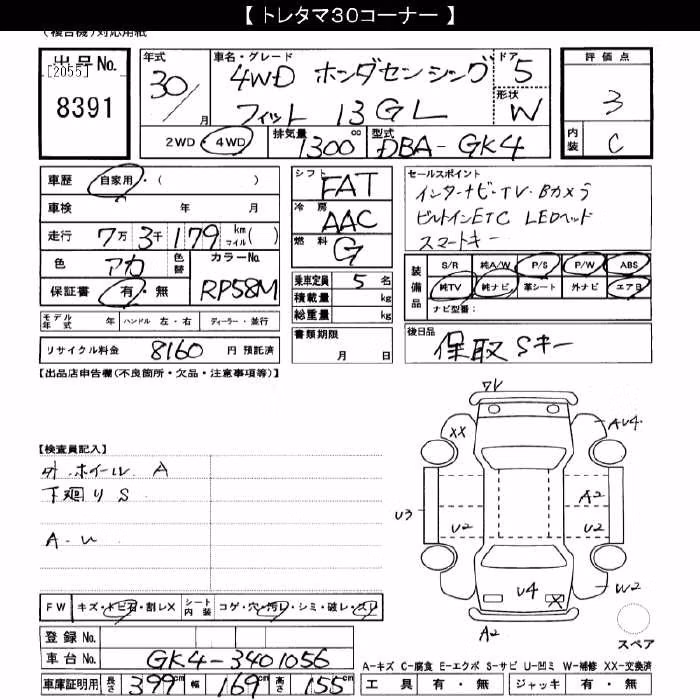 【 トレタマ30コーナー 】
(複合機)対応用紙
出品No.
[2055]
8391
年式
30/
月
車名・グレード
4WD ホンダセンシング
フィット 13GL
ドア
5
形状
W
2WD・4WD
排気量
1300cc
型式
DBA-GK4
評価点
3
内装
C
車歴 自家用・( )
車検 年 月
走行 7万 3千 179 km マイル( )
色 アカ 色替 カラーNo.
保証書 有・無 RP58M
シフト
FAT
冷房
AAC
燃料
G
セールスポイント
インターナビ・TV・Bカメラ
ビルトインETC LEDヘッド
スマートキー
装備品
S/R 純A/W P/S P/W ABS
純TV 純ナビ 革シート 外ナビ エアB
ナビ型番:
乗車定員 5 名
積載量 kg
総重量 kg
モデル年式 年 ハンドル 左・右 ディーラー・並行
リサイクル料金 8160 円 預託済
書類期限
月 日
後日品
保取Sキー
【出品店申告欄(不良箇所・欠品・注意事項等)】
【検査員記入】
外 ホイール A
下廻り S
A・U
XX
AU4
U3
U2
A2
U2
U4
X
W2
A2
スペア
FW キズ・トビ石・割レX シート内装 コゲ・穴・汚レ・シミ・破レ・スレ
登録No.
車台No. GK4-3401056
車庫証明用 長さ 399cm 幅 169cm 高さ 155cm
A-キズ C-腐食 E-エクボ S-サビ U-凹ミ W-補修 XX-交換済
工具 有・無 ジャッキ 有・無